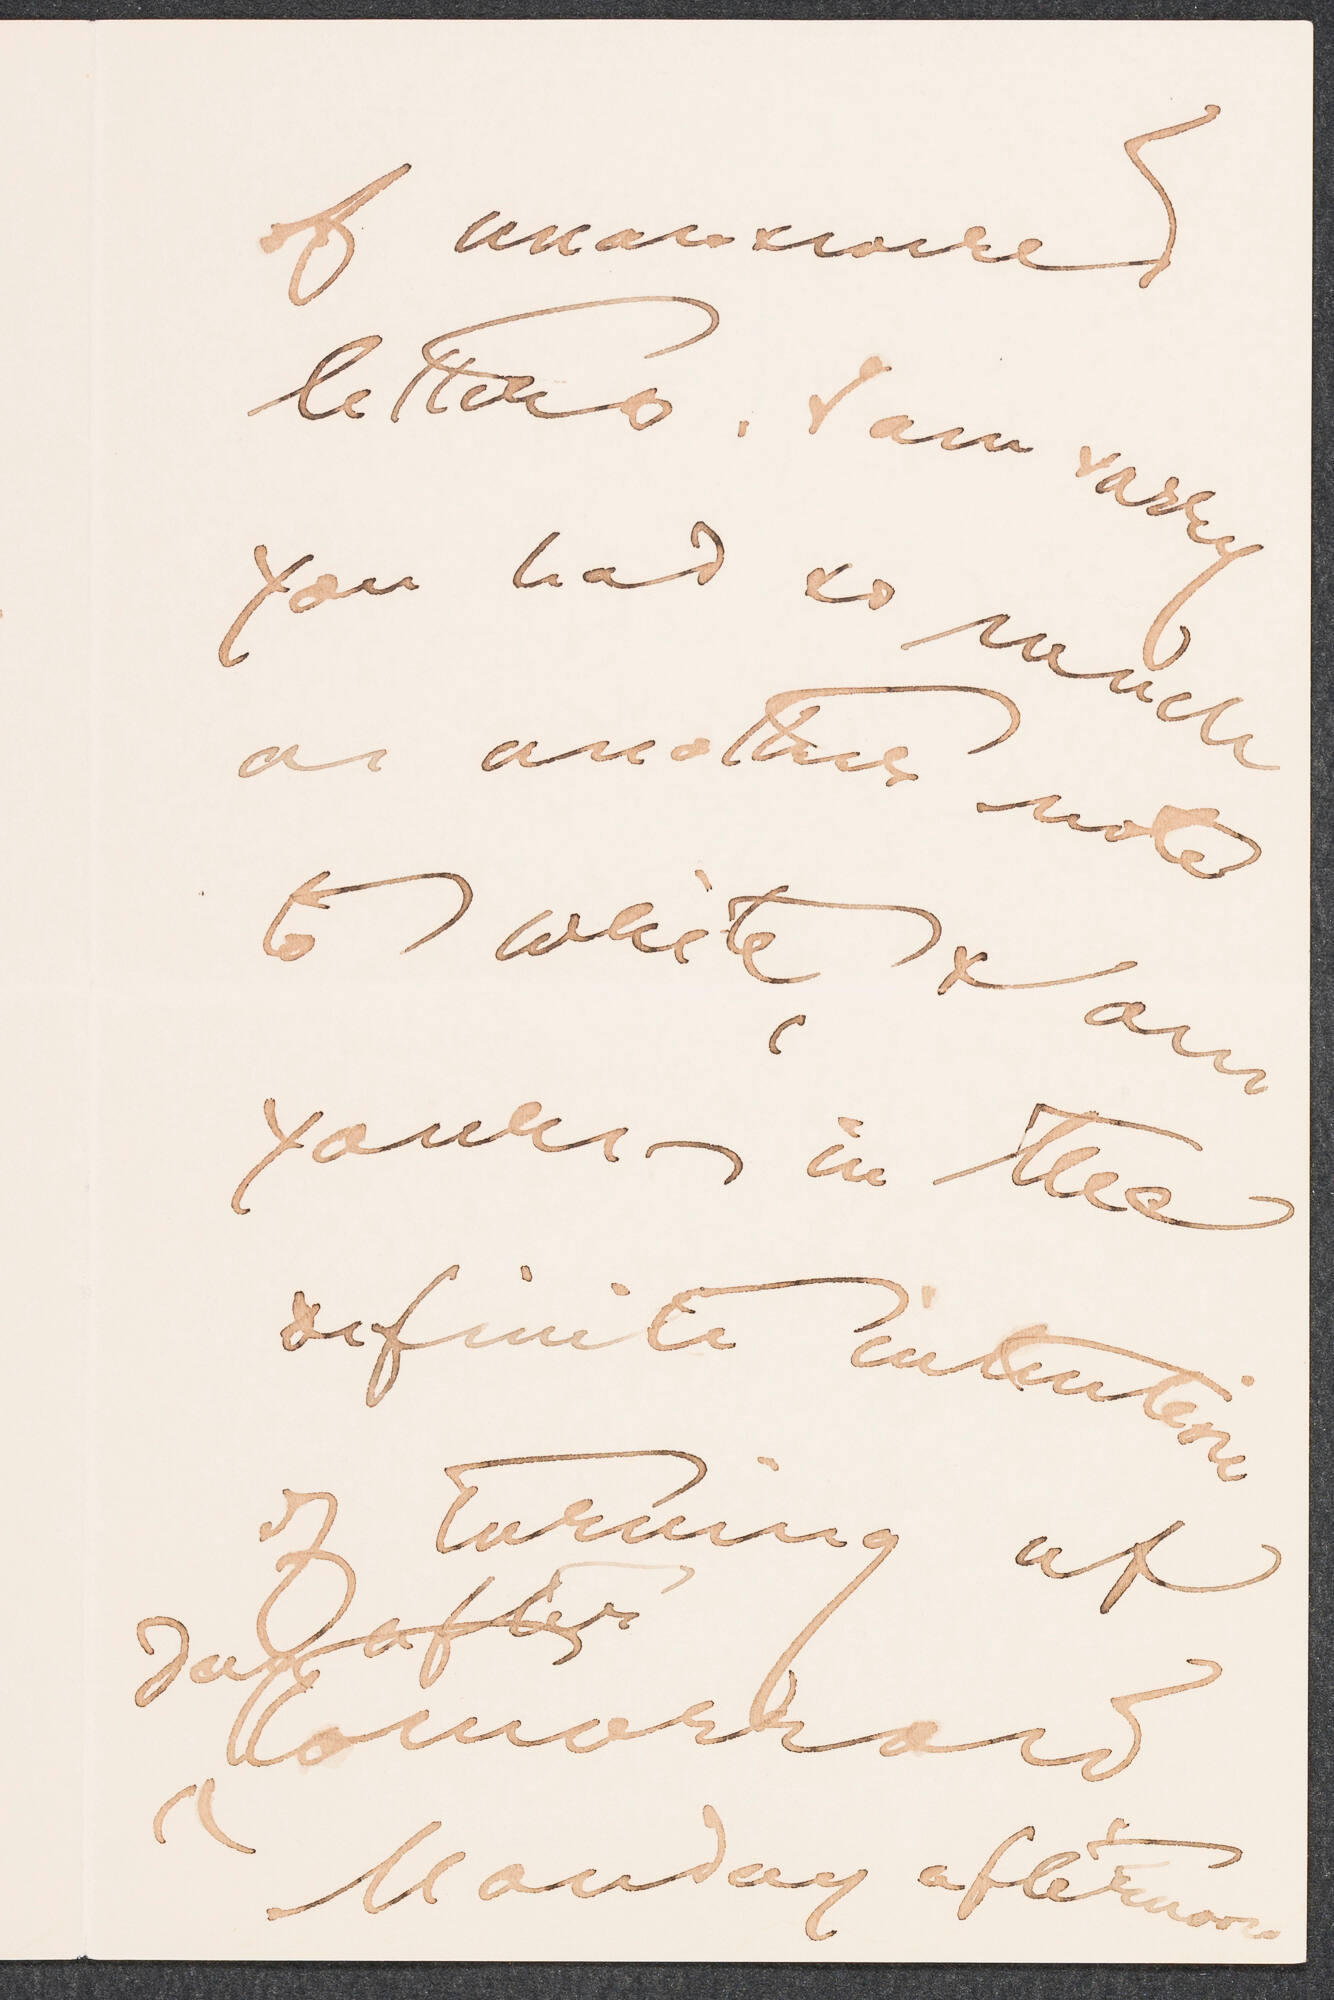 of unanswered
letters. I am sorry
you had so much
as another note
to write, & am
yours in the
definite intention
of turning up
day after
tomorrow
Monday afternoon